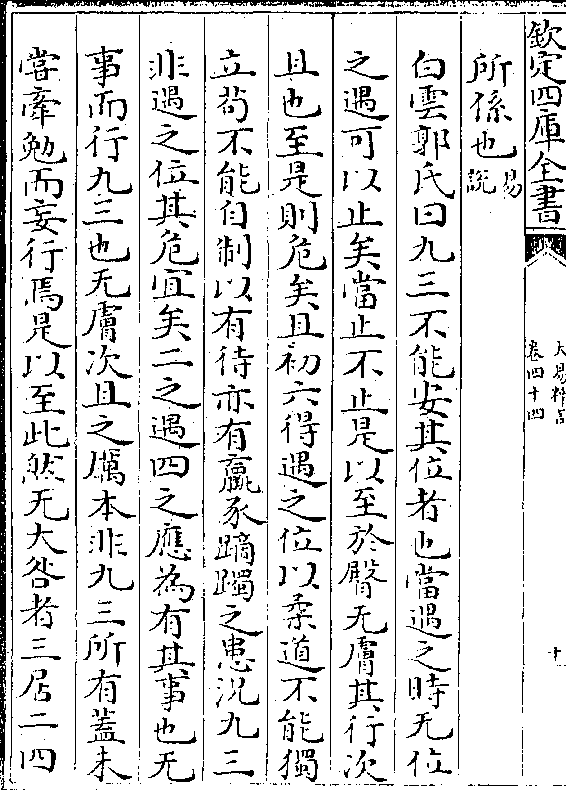 欽定四庫全書
大易粹言
卷四十四
十
所係也易說
白雲郭氏曰九三不能安其位者也當遇之時无位
之遇可以止矣當止不止是以至於臀无膚其行次
且也至是則危矣且初六得遇之位以柔道不能獨
立茍不能自制以有待亦有羸豕蹢躅之患況九三
非遇之位其危宜矣二之遇四之應為有其事也无
事而行九三也无膚次且之厲本非九三所有蓋未
嘗牽勉而妄行焉是以至此然无大咎者三居二四